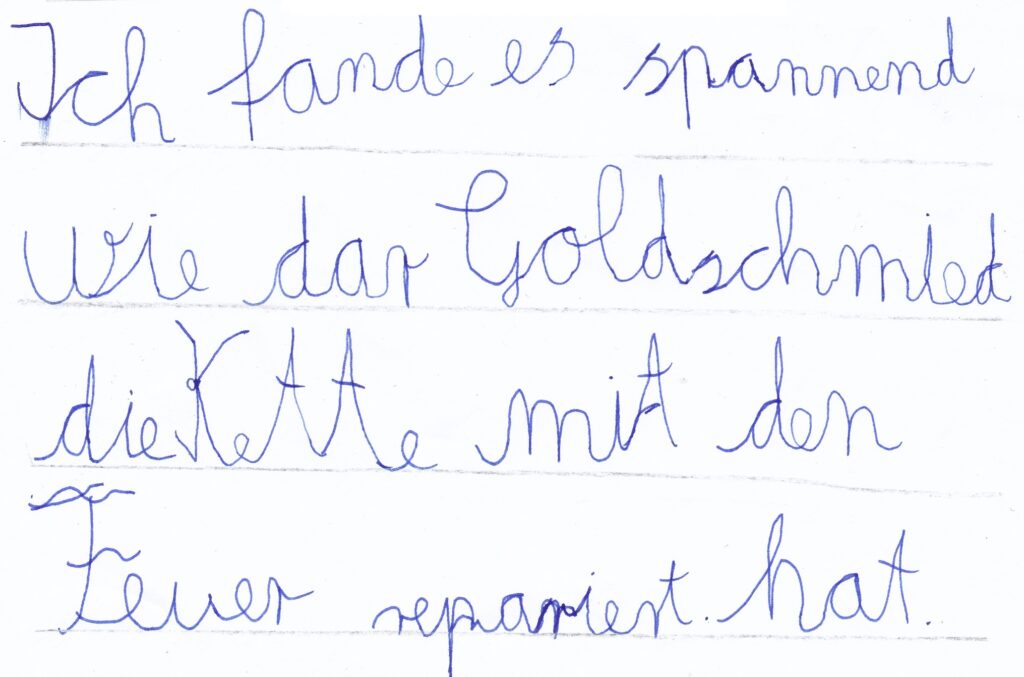 Ich fande es spannend
wie dar Goldschmied
die Kette mit den
Feuer repariert. hat.